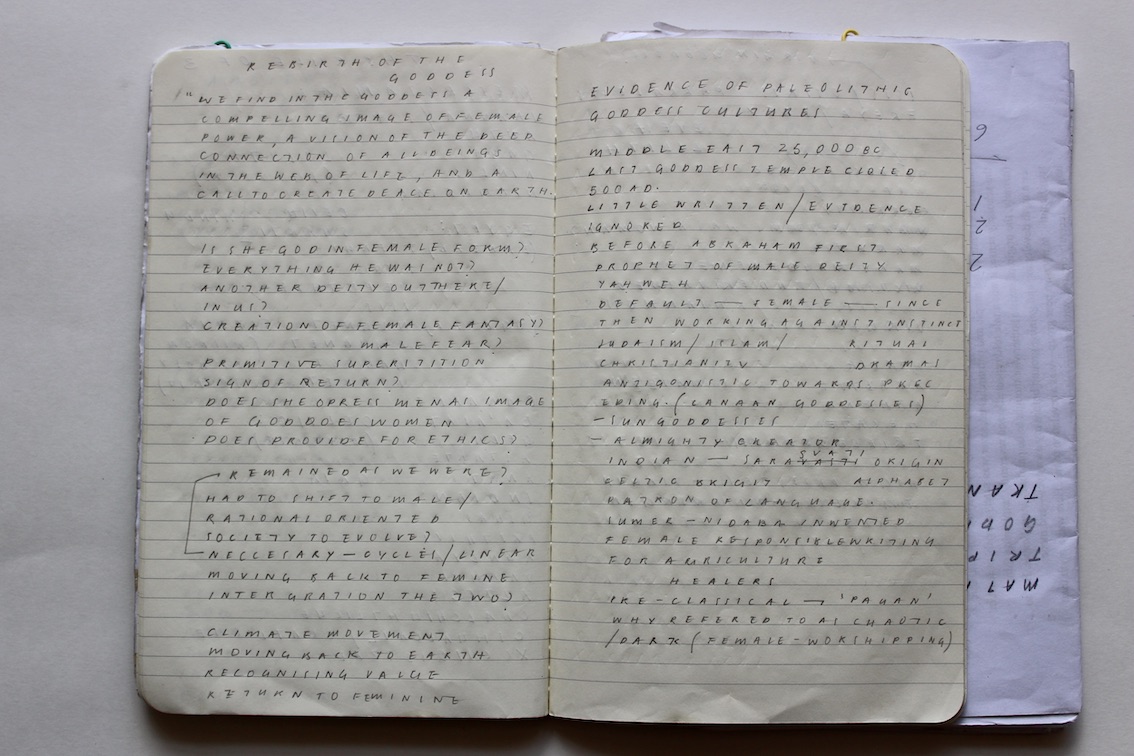 REBIRTH OF THE
GODDESS
"WE FIND IN THE GODDESS A
COMPELLING IMAGE OF FEMALE
POWER, A VISION OF THE DEEP
CONNECTION OF ALL BEINGS
IN THE WEB OF LIFE, AND A
CALL TO CREATE PEACE ON EARTH.
IS SHE GOD IN FEMALE FORM?
EVERYTHING HE WAS NOT?
ANOTHER DEITY OUT THERE/
IN US?
CREATION OF FEMALE FANTASY?
MALE FEAR?
PRIMITIVE SUPERSTITION
SIGN OF RETURN?
DOES SHE OPRESS MEN AS IMAGE
OF GOD DOES WOMEN
DOES PROVIDE FOR ETHICS?
REMAINED AS WE WERE?
HAD TO SHIFT TO MALE/
RATIONAL ORIENTED
SOCIETY TO EVOLVE?
NECCESARY — CYCLES/LINEAR
MOVING BACK TO FEMINE
INTERGRATION THE TWO?
CLIMATE MOVEMENT
MOVING BACK TO EARTH
RECOGNISING VALUE
RETURN TO FEMININE
EVIDENCE OF PALEOLITHIC
GODDESS CULTURES
MIDDLE EAST 25,000 BC
LAST GODDESS TEMPLE CLOSED
500 AD.
LITTLE WRITTEN/EVIDENCE
IGNORED
BEFORE ABRAHAM FIRST
PROPHET OF MALE DEITY
YAHWEH
DEFAULT — FEMALE — SINCE
THEN WORKING AGAINST INSTINCT
JUDAISM/ISLAM/ RITUAL
CHRISTIANITY DRAMAS
ANTIGONISTIC TOWARDS PREC
EDING. (CANAAN GODDESSES)
- SUN GODDESSES
- ALMIGHTY CREATOR
SVATI
INDIAN — SARAVASTI ORIGIN
CELTIC BRIGIT ALPHABET
PATRON OF LANGUAGE.
SUMER - NIDABA INVENTED
FEMALE RESPONSIBLE WRITING
FOR AGRICULTURE
HEALERS
PRE-CLASSICAL → 'PAGAN'
WHY REFERED TO AS CHAOTIC
/DARK (FEMALE-WORSHIPPING)
6
1
2
2
TRAN
GOD
TRIP
MAT